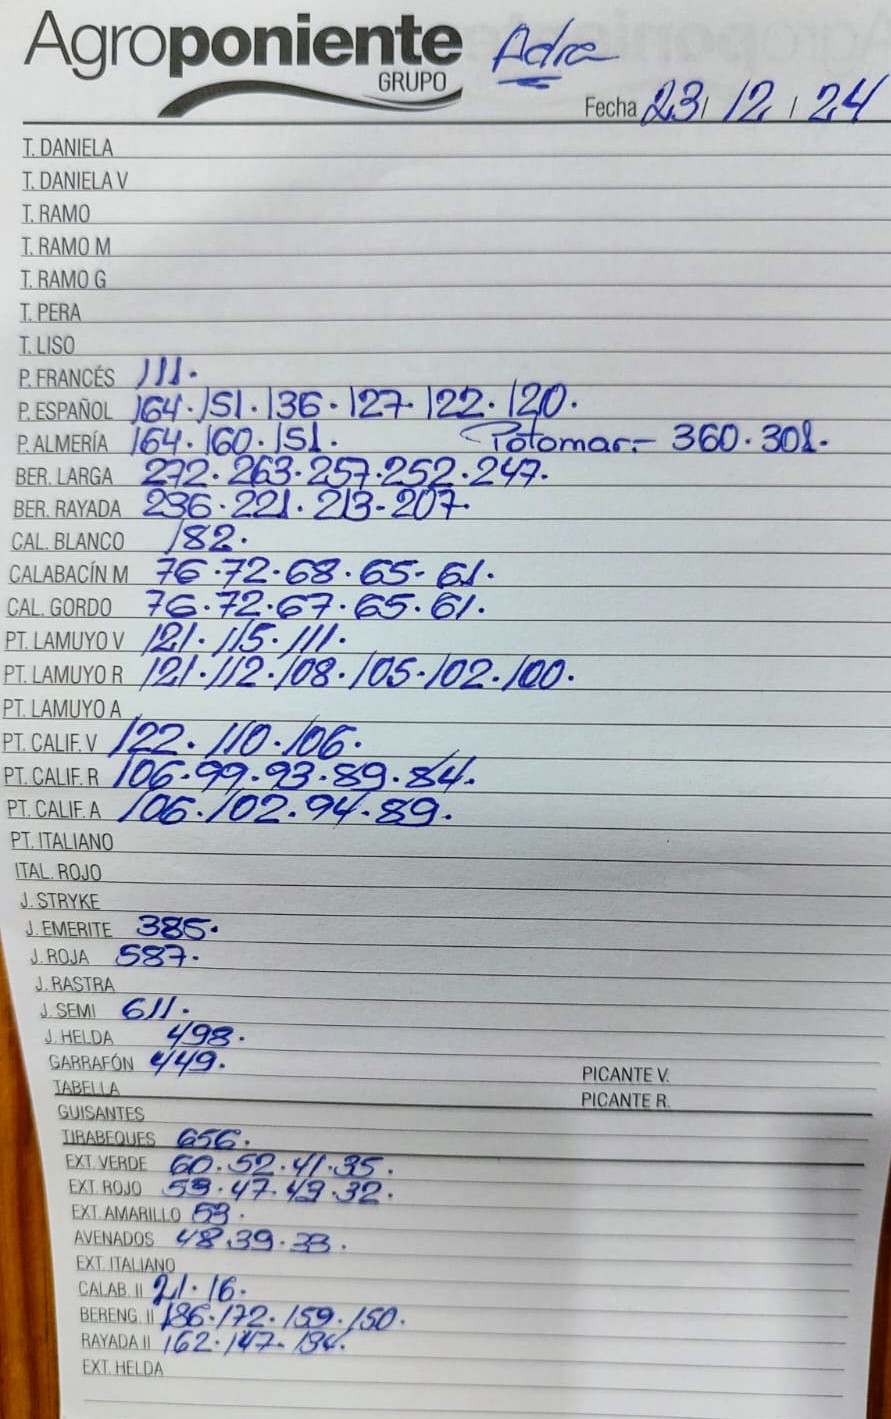 Agroponiente Adra
GRUPO
Fecha 23 / 12 / 24
T. DANIELA
T. DANIELA V
T. RAMO
T. RAMO M
T. RAMO G
T. PERA
T. LISO
P. FRANCÉS 111.
P. ESPAÑOL 164. 151. 136. 127. 122. 120.
P. ALMERÍA 164. 160. 151. Potomar.- 360. 301.
BER. LARGA 272. 263. 257. 252. 247.
BER. RAYADA 236. 221. 213- 207.
CAL. BLANCO 182.
CALABACÍN M 76. 72. 68. 65. 61.
CAL. GORDO 76. 72. 67. 65. 61.
PT. LAMUYO V 121. 115. 111.
PT. LAMUYO R 121. 112. 108. 105. 102. 100.
PT. LAMUYO A
PT. CALIF. V 122. 110. 106.
PT. CALIF. R 106. 99. 93. 89. 84.
PT. CALIF. A 106. 102. 94. 89.
PT. ITALIANO
ITAL. ROJO
J. STRYKE
J. EMERITE 385.
J. ROJA 587.
J. RASTRA
J. SEMI 611.
J. HELDA 498.
GARRAFÓN 449. PICANTE V.
TABELLA PICANTE R.
GUISANTES
TIRABEQUES 656.
EXT. VERDE 60. 52. 41. 35.
EXT. ROJO 59. 47. 32.
EXT. AMARILLO
AVENADOS 48. 39. 33.
EXT. ITALIANO
CALAB. II 21. 16.
BERENG. II 186. 172. 159. 150.
RAYADA II 162. 147. 134.
EXT. HELDA